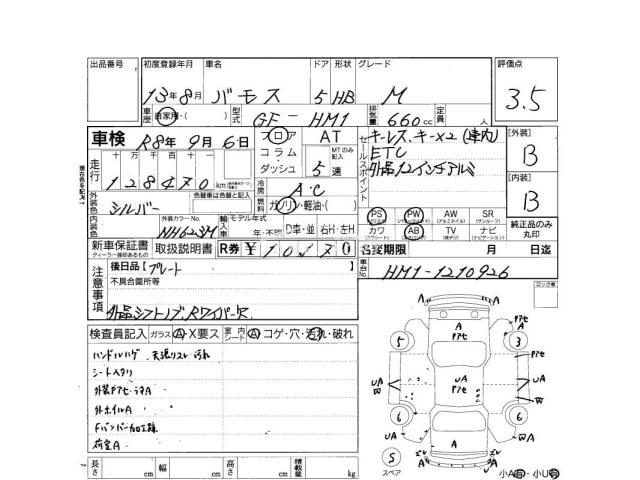 出品番号 初度登録年月 車名 ドア 形状 グレード 評価点
13年8月 バモス 5 HB M 3.5
車歴 自家用・( ) 型式 GF-HM1 排気量 660cc 定員 人
車検 R8年9月6日 フロア コラム・ダッシュ AT MTのみ記入 5速
セールスポイント キーレス、キー×2(車内)
ETC
社外12インチアルミ
[外装] B
[内装] B
走行 十 万 千 百 十
128470km
冷房 A・C
燃料 ガソリン・軽油・( )
外装色 シルバー 色替車は色替と記入
内装色 外装カラーNo. NH623M
輸入車 モデル年式 年・不問 D車・並 右H・左H
PS PW AW SR
カワ AB TV ナビ
純正品のみ丸印
新車保証書 取扱説明書 R券 ¥10170 名変期限 月 日迄
ディーラー捺印あるもの
車台No. HM1-1210926
注意事項 後日品[プレート
不具合箇所等
社外シフトノブ、Rワイパー欠
検査員記入 ガラス A X要ス 室内シート A コゲ・穴・汚れ・破れ
ハンドルハゲ、天張リスレ汚れ
シートスタリ
外装P7セ・うすA
外ホイルA
Fバンパー加工録
荷室A
長さ cm 幅 cm 高さ cm 積載量 kg
ロック車
A
A A P7セ
P7セ
5 3
P7セ
UA UA P7セ UA
W W
6 6
UA A WA
S
スペア
小A有・小U有